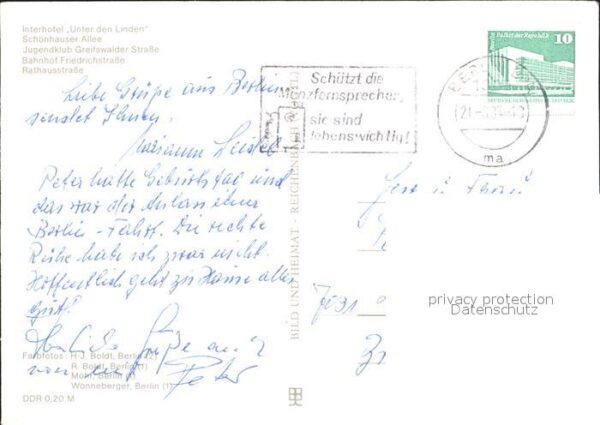 Interhotel „Unter den Linden"
Schönhauser Allee
Jugendklub Greifswalder Straße
Bahnhof Friedrichstraße
Rathausstraße
Liebe Grüße aus Berlin
sendet Ihnen
Marianne
Peter hatte Geburtstag und
das war der Anlass einer
Berlin-Fahrt. Die rechte
Ruhe habe ich zwar nicht.
Hoffentlich geht zu Hause alles
gut?
Herzliche Grüße auch
von Peter
Farbfotos: H-J. Boldt, Berlin (2)
R. Boldt, Berlin (1)
Mohr, Berlin
Wonneberger, Berlin (1)
DDR 0,20 M
BILD UND HEIMAT · REICHENBACH
Schützt die
Münzfernsprecher,
sie sind
lebenswichtig!
10
Palast der Republik
ma
u
privacy protection
Datenschutz